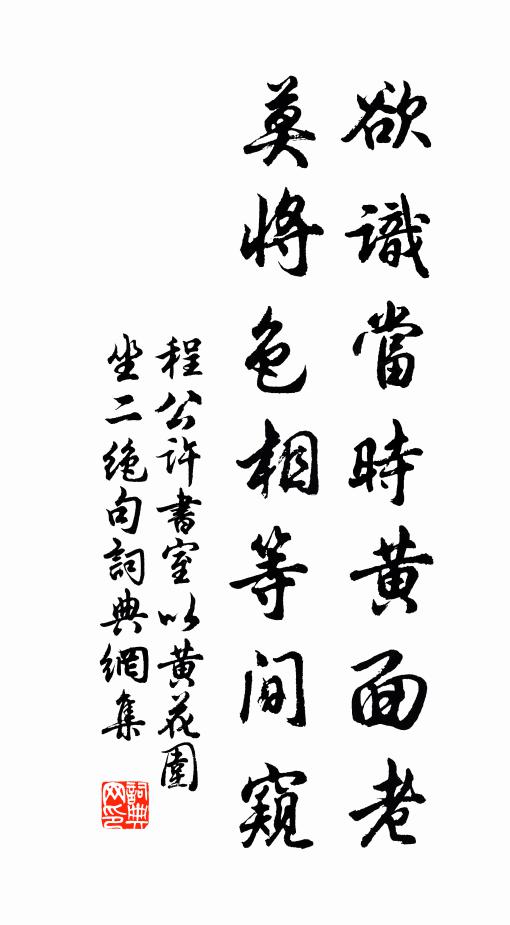 欲識當時黄面老
莫將色相等间窺
程公許書室以黄花圍
坐二絶句詞典網集
詞典
网印